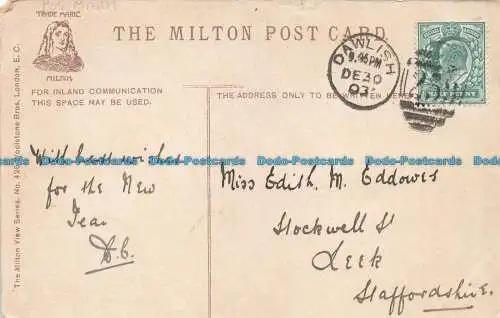 TRADE MARK
MILTON
THE MILTON POST CARD.
DAWLISH
9.45PM
DE 30
03
FOR INLAND COMMUNICATION
THIS SPACE MAY BE USED.
THE ADDRESS ONLY TO BE WRITTEN HERE
The Milton View Series, No. 42 Woolstone Bros, London, E. C.
With best wishes
for the New
Year
D.C.
Miss Edith. M. Eddowes
Stockwell St
Leek
Staffordshire.
Dodo-Postcards Dodo-Postcards Dodo-Postcards Dodo-Postcards Dodo-Postcards